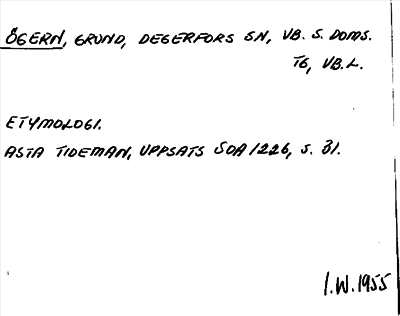 ÖGERN, GRUND, DEGERFORS SN, VB. S. DOMS.
TG, VB.L.
ETYMOLOGI.
ASTA TIDEMAN, UPPSATS SOA 1226, S. 31.
I.W.1955